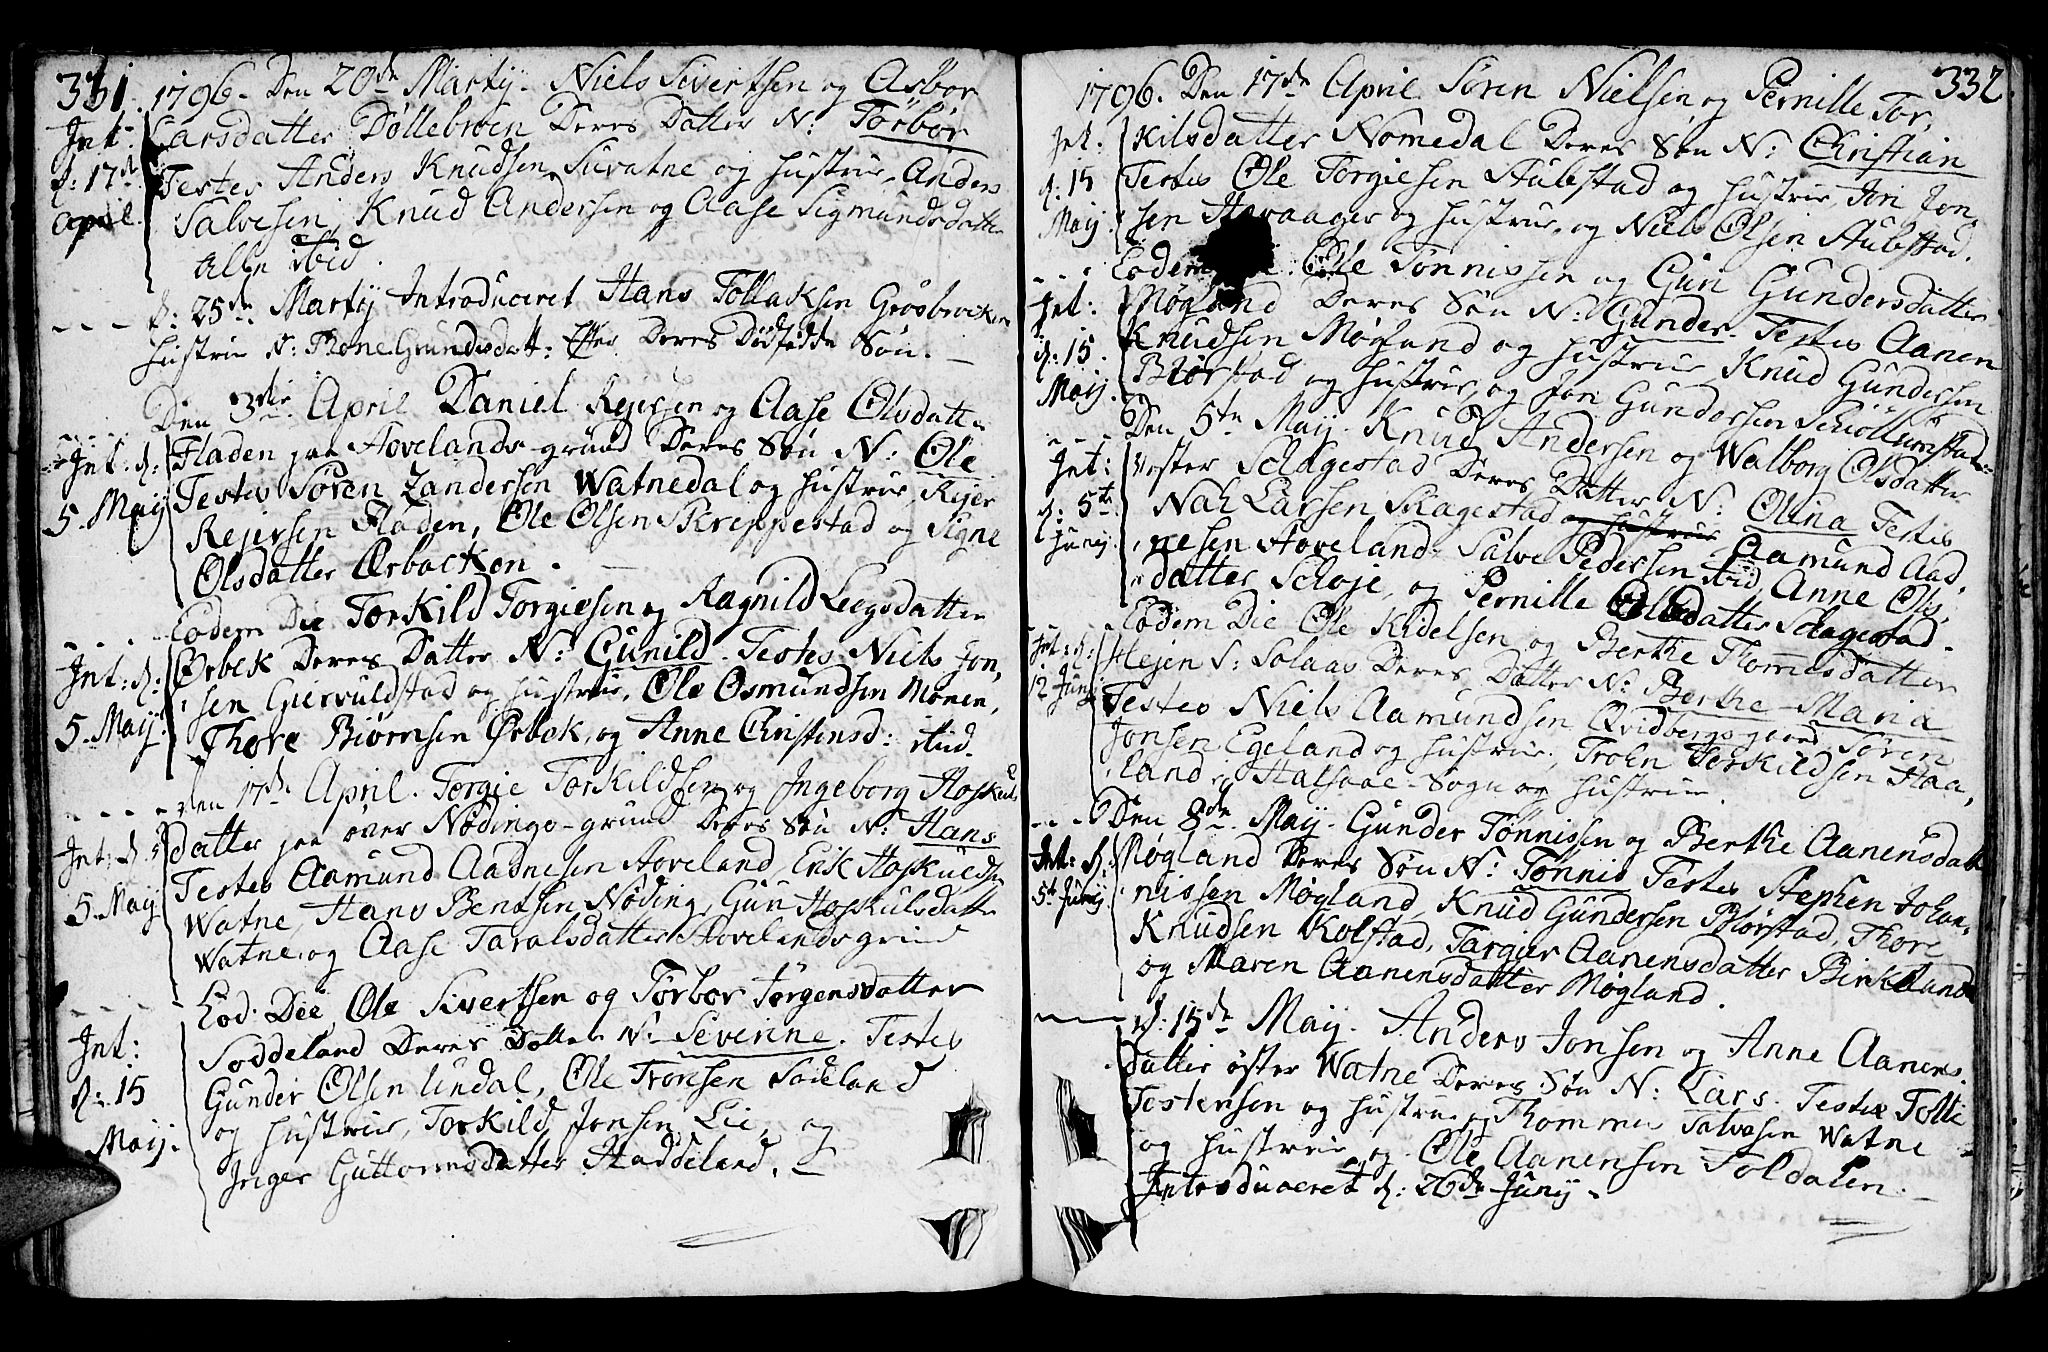 331.
1796. Den 20de Martij. Niels Sivertsen og Asbor
Int: Larsdatter Döllebroen Deres Datter N: Törbör
d: 17de Testes Anders Knudsen Suvatne og hustrue, Anders
April. Salvesen, Knud Andersen og Aase Sigmundsdatter
Alle ibid.
d: 25de Martij Introduceret Hans Tollaksen
hustrue N: Thone Gundersdatt: Efter Deres Dødfødde Søn.
Den 3die April Daniel Rejersen og Aase Olsdatter
Int: d: Fladen paa Hovelands-grund Deres Søn N: Ole
5. Maij Testes Søren Zandersen Watnedal og hustrue, Rejer
Rejersen Fladen, Ole Olsen Skreppestad og Signe
Olsdatter Ørbacken.
Eodem Die Torkild Torgiesen og Ragnild Leegsdatter
Int: d: Ørbek Deres Datter N: Gunild. Testes Niels Jon,
5. Maij. sen Giervuldstad og hustrue, Ole Osmundsen Monen,
Thore Biörnsen Ørbek, og Anne Christensd: ibid.
Den 17de April. Torgie Torkildsen og Ingeborg Hoskuls
Int: d datter paa over Nödings-grund Deres Søn N: Hans
5. Maij Testes Aamund Aadnesen Hoveland, Erik Hoskuldsen
Watne, Hans Bentsen Nöding, Gun Hoskulsdatter
Watne, og Aase Taralsdatter Hovelands grund
Eod: Die Ole Sivertsen og Törbor Jörgensdatter
Int: Soddeland Deres Datter N: Severine. Testes
d: 15 Gunder Olsen Undal, Ole Tronsen Sodeland
Maij. og hustrue, Torkild Jonsen Lie, og
Inger Guttormsdatter Haddeland.
332
1796. Den 17de April Sören Nielsen og Pernille Tor,
Int. kilsdatter Nomedal Deres Søn N: Christian
d: 15 Testes Ole Torgiesen Stubstad og hustrue, Jon Jon,
Maij. sen Haraager og hustrue, og Niels Olsen Stubstad.
Eodem Ole Tönnissen og Guri Gundersdatter
Int: Mögland Deres Søn N: Gunder. Testes Aanen
d: 15. Knudsen Mögland og hustrue Knud Gundersen
Maij. Biörstad og hustrue, og Jon Gundersen
Den 5te Maij. Knud Andersen og Walborg Olsdatter
Int: Vester Schagestad Deres Datter N: Olena Testes
d: 5te Larsen Skagestad og hustrue Aamund Aad,
Junij. nesen Hoveland. Salve Pedersen ibid, Anne Ols,
datter Schoje, og Pernille Olsdatter Schagestad.
Eodem Die Ole Kidelsen og Berthe Thommesdatter
Int: d: Hejen S: Solaas Deres Datter N: Berthe-Maria
12 Junij Testes Niels Aamundsen Qvidbergsgaard, Sören
Jonsen Egeland og hustrue, Troen Torkildsen Haa,
land i Halsaae-Sogn og hustrue.
Den 8de Maij. Gunder Tönnissen og Berthe Aanensdatter
Int: d: Mögland Deres Søn N: Tönnis Testes Stephen Johan,
5te Junij nissen Mögland, Knud Gundersen Biörstad, Thore
Knudsen Kolstad, Targier Aanensdatter Birkeland
og Maren Aanensdatter Mögland.
d: 15de Maij. Anders Jonsen og Anne Aanens,
datter öster Watne Deres Søn N: Lars. Testes Tolle
Tostensen og hustrue, Thommes Salvesen Watne
og hustrue, og Ole Aanensen Toldalen.
Introduceret d: 26de Junij.